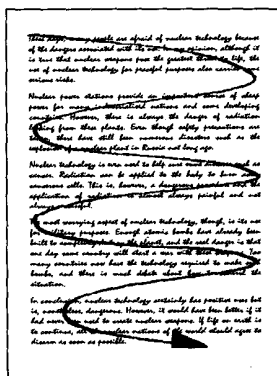 These days, many people are afraid of nuclear technology because
of the dangers associated with its use. In my opinion, although it
is true that nuclear weapons pose the greatest threat to life, the
use of nuclear technology for peaceful purposes also carries
serious risks.
Nuclear power stations provide an important source of cheap
power for many industrialised nations and some developing
countries. However, there is always the danger of radiation
leaking from these plants. Even though safety precautions are
taken, there have still been numerous disasters such as the
explosion of a nuclear plant in Russia not long ago.
Nuclear technology is even used to help cure some diseases such as
cancer. Radiation can be applied to the body to burn
cancerous cells. This is, however, a dangerous procedure and the
application of radiation is almost always painful and not
always successful.
The most worrying aspect of nuclear technology, though, is its use
for military purposes. Enough atomic bombs have already been
built to completely destroy the planet, and the real danger is that
one day some country will start a war with these weapons. Too
many countries now have the technology required to make such
bombs, and there is much debate about how to control the
situation.
In conclusion, nuclear technology certainly has positive uses but
is, nonetheless, dangerous. However, it would have been better if it
had never been used to create nuclear weapons. If life on earth is
to continue, all the nuclear nations of the world should agree to
disarm as soon as possible.